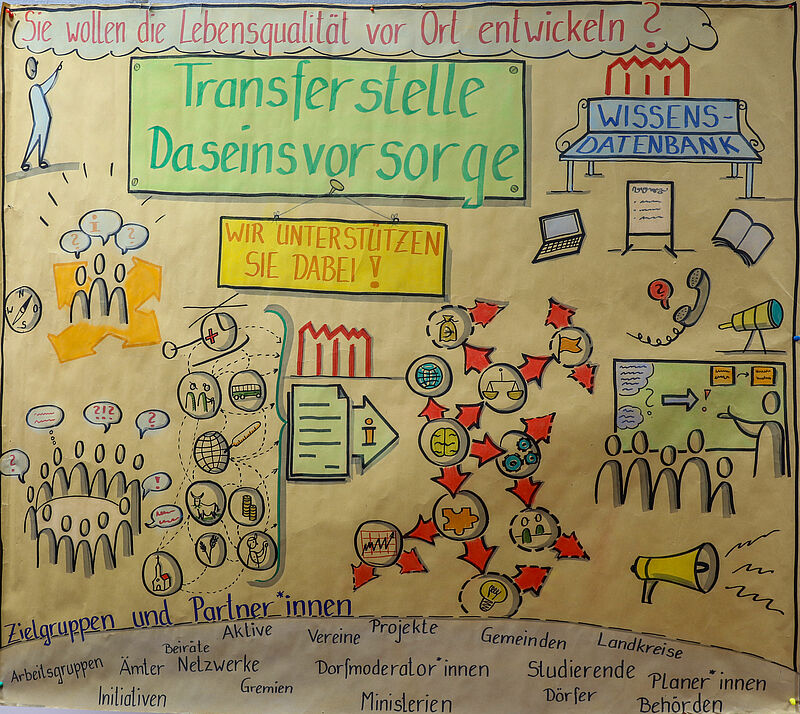 Sie wollen die Lebensqualität vor Ort entwickeln?
Transferstelle
Daseinsvorsorge
WISSENS-
DATENBANK
WIR UNTERSTÜTZEN
SIE DABEI!
? i ?
N
W O
S
?
i
? !?!? ?
!
? !
Zielgruppen und Partner*innen
Arbeitsgruppen
Ämter
Beiräte
Netzwerke
Aktive
Vereine
Projekte
Gemeinden
Landkreise
Initiativen
Gremien
Dorfmoderator*innen
Ministerien
Studierende
Dörfer
Planer*innen
Behörden